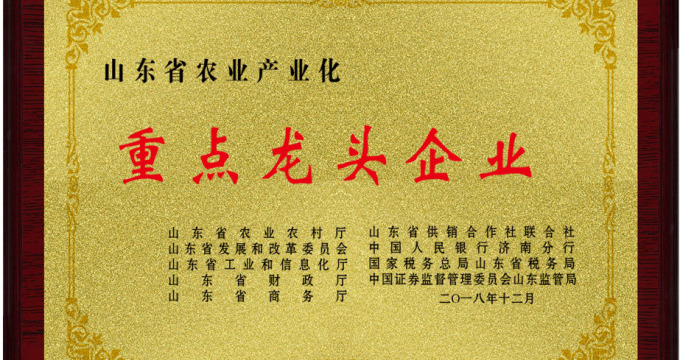 山东省农业产业化
重点龙头企业
山东省农业农村厅
山东省发展和改革委员会
山东省工业和信息化厅
山东省财政厅
山东省商务厅
山东省供销合作社联合社
中国人民银行济南分行
国家税务总局山东省税务局
中国证券监督管理委员会山东监管局
二〇一八年十二月